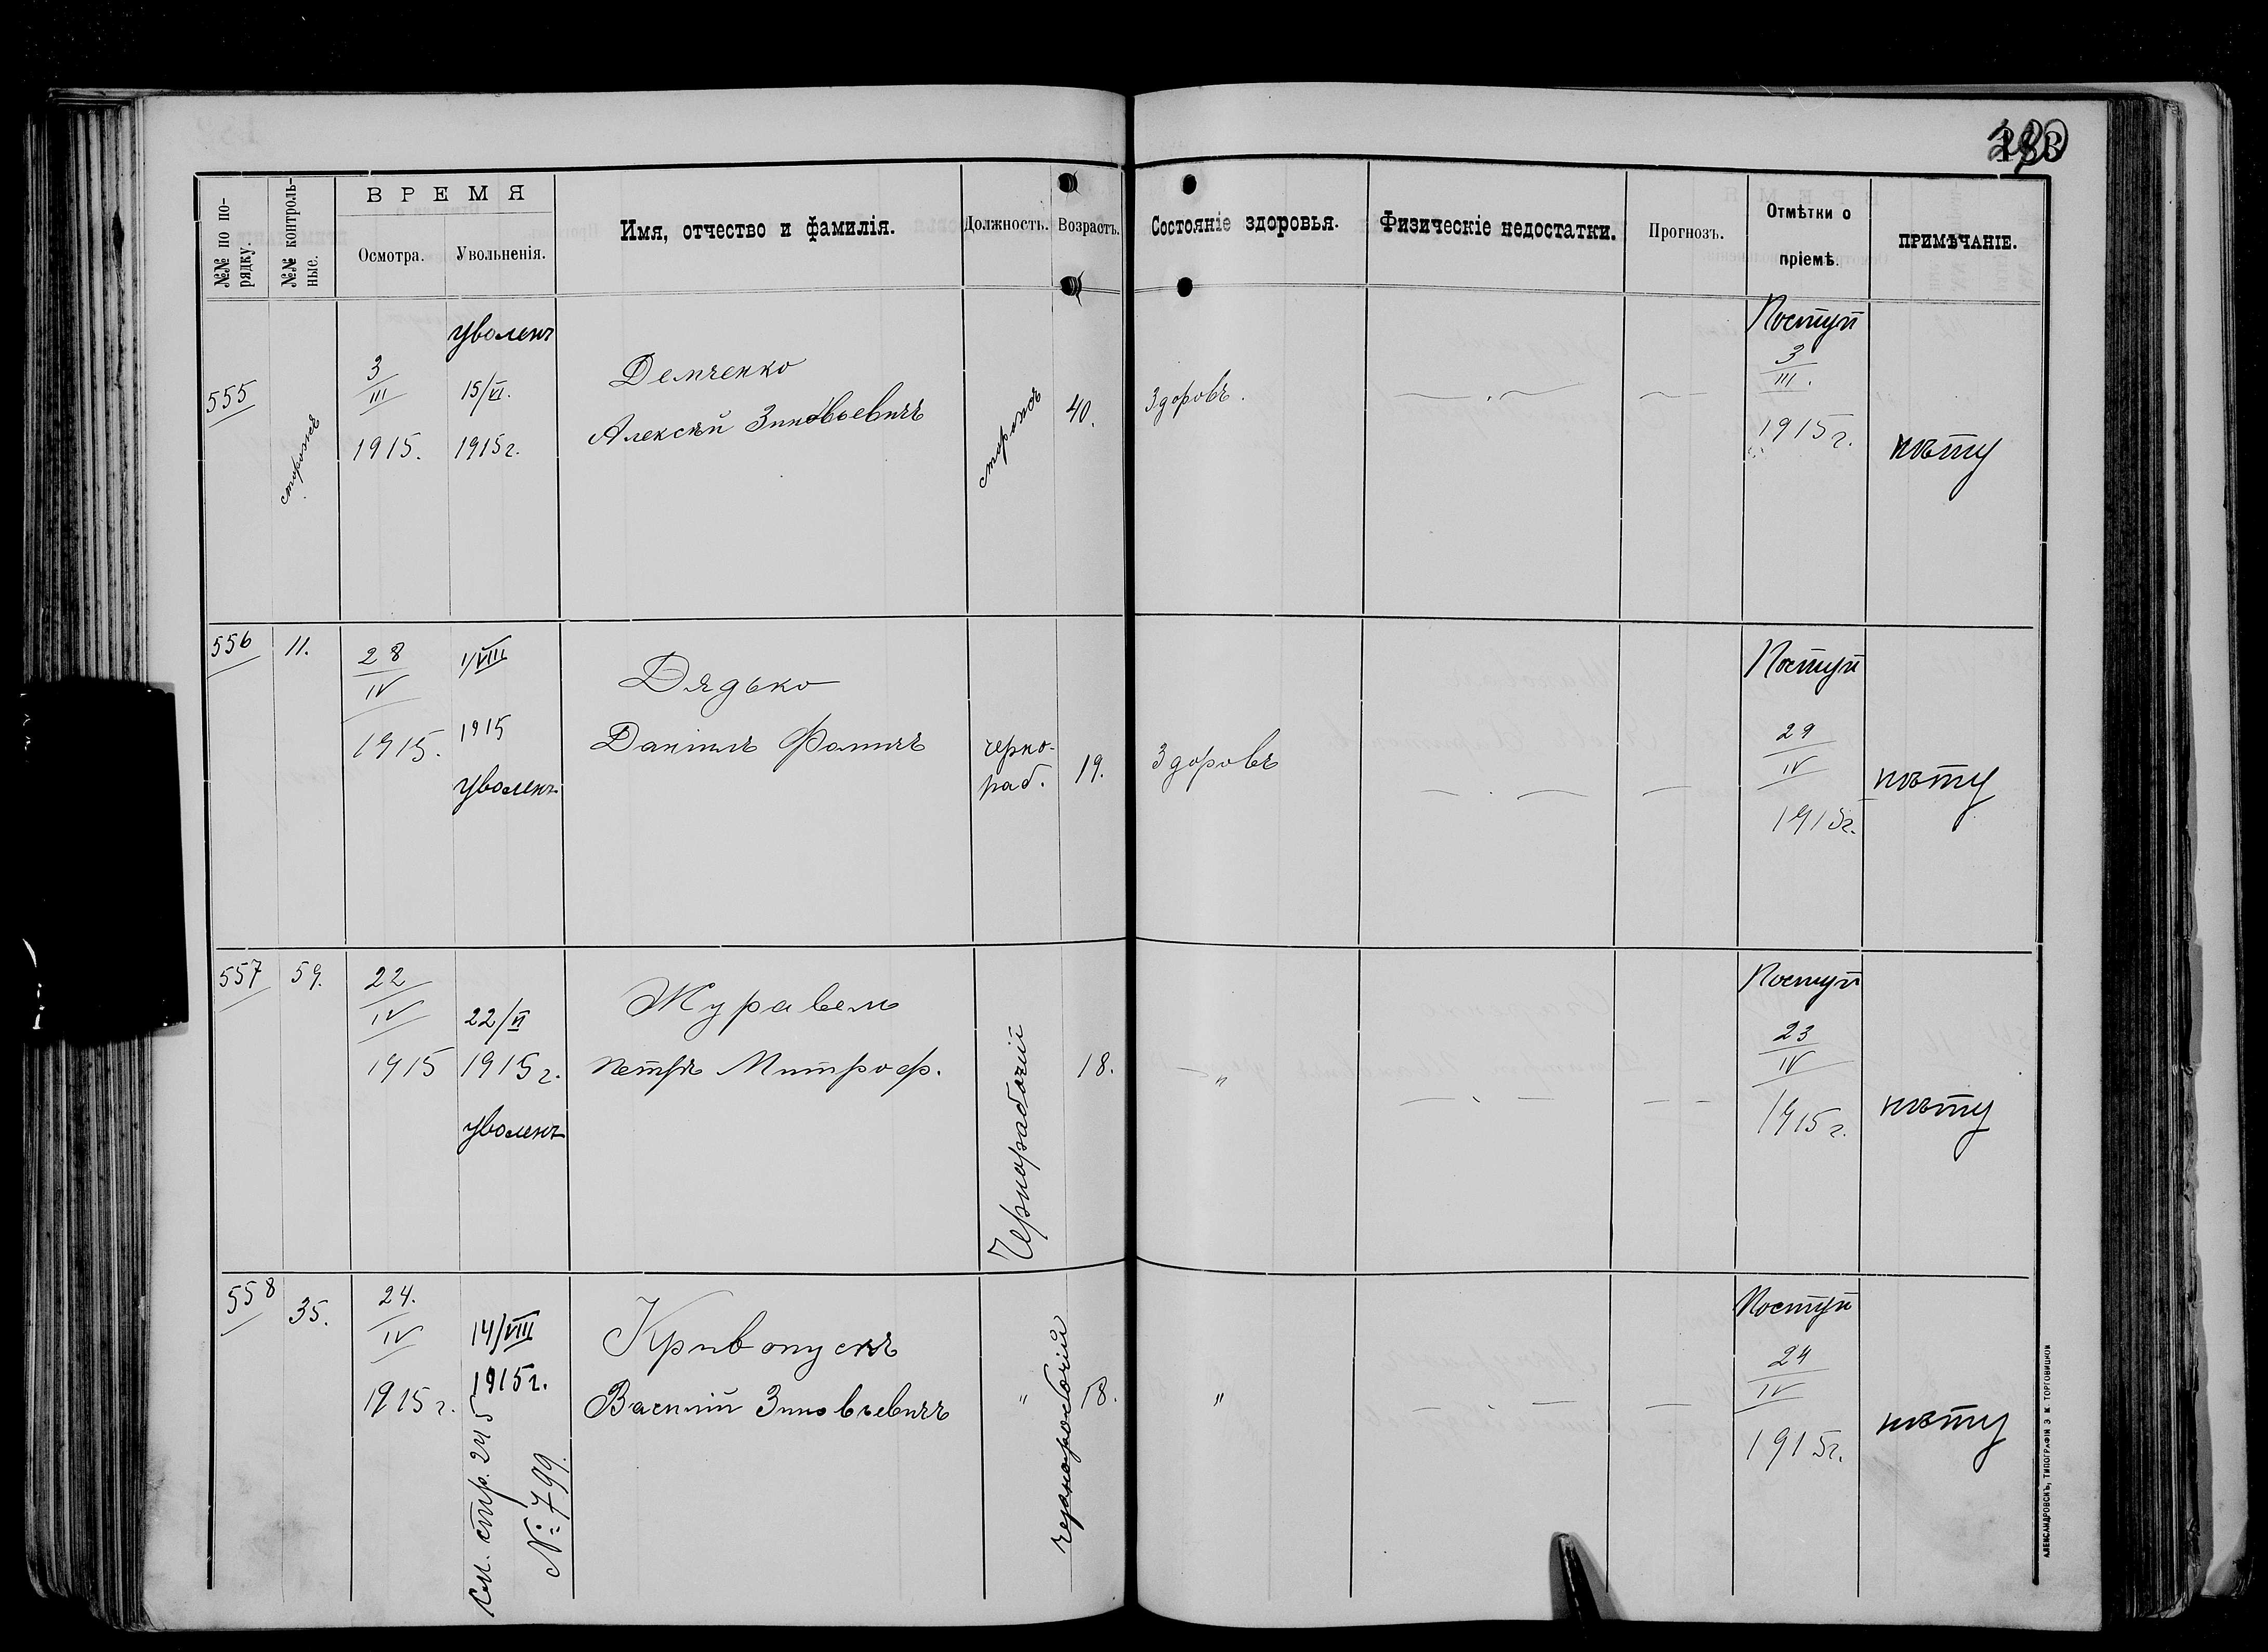 ВРЕМЯ
№№ по по-
рядку.
№№ контроль-
ные.
Осмотра.
Увольненія.
Имя, отчество и фамилія.
Должность.
Возрастъ.
Состояніе здоровья.
Физическіе недостатки.
Прогнозъ.
Отмѣтки о
пріемѣ.
ПРИМѢЧАНІЕ.
555
сторожъ
3/III
1915.
уволенъ
15/VI.
1915г.
Демченко
Алексѣй Зиновьевичъ
сторожъ
40.
Здоровъ.
— . —
—
Поступ
3/III.
1915г.
нѣту
556
11.
28/IV
1915.
1/VIII
1915
уволенъ
Дядько
Даніилъ Фомичъ
черно-
раб.
19.
Здоровъ
— . —
—
Поступ
29/IV
1915г.
нѣту
557
59.
22/IV
1915
22/VI
1915г.
уволенъ
Журавель
Петръ Митроф.
Чернорабочій
18.
— „
— . —
— —
Поступ
23/IV
1915г.
нѣту
558
35.
24./IV
1915г.
14/VIII
1915г.
см. стр. 245
№ 799.
Кривопускъ
Василій Зиновьевичъ
„
чернорабочій
18.
„
— . —
—
Поступ
24/IV
1915г.
нѣту
АЛЕКСАНДРОВСКЪ, ТИПОГРАФІЯ Э. М. ТОРГОВИЦКОЙ